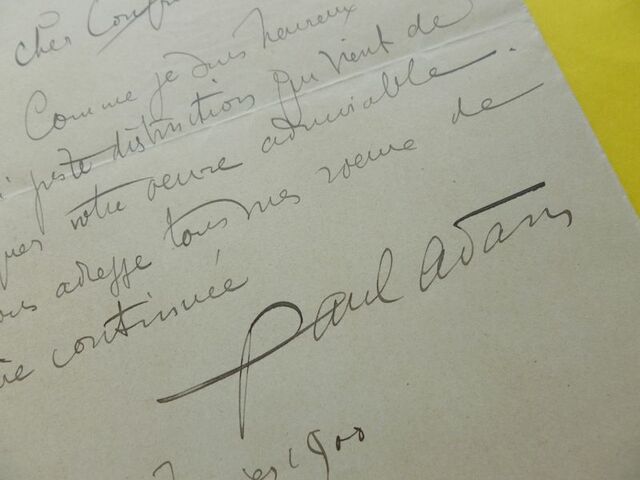 cher Conf
Comme je suis heureux
juste distinction qui vient de
votre œuvre admirable.
adresse tous mes voeux de
continuée
Paul Adam
1900